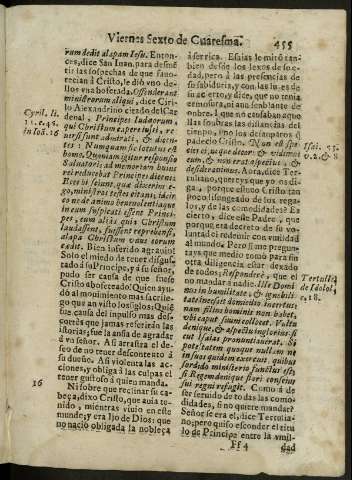 Viernes Sexto de Cuaresma.
455
rum dedit alapam Iesu. Enton-
ces, dice San Iuan, para desmē
tir las sospechas de que fauo-
recian à Christo, le diò vno de-
llos vna bofetada. Offenderant
ministrorum aliqui, dice Ciri-
lo Alexandrino citado del Car-
denal, Principes Iudæorum,
qui Christum capere iussi, re-
uersi sunt admirati, & dicen-
tes: Numquam sic locutus est ho-
mo. Quoniam igitur responsio
Ecce hi seiunt, quæ dixerim e-
go, ministra testes citans, ideir-
co ne de animo beneuolentiaque
in eum suspicati essent Princi-
pes, cum alij, quia Christum
laudassent, fuissent reprehensi,
alapa Christum vnus eorum
cædit. Bien inserido agrauio!
Solo el miedo de tener disgus-
tado à su Principe, y à su señor,
pudo ser causa de que fuese
Cristo abofeteado! Quien ayu-
dò al mouimiento mas sacrile-
go que an visto los siglos! Quiē
fue causa del impulso mas des-
cortès que jamas referiràn las
istorias; fue la ansia de agradar
à vn señor. Asi arrastra el de-
seo de no tener descontento à
su dueño. Asi violenta las ac-
ciones, y obliga à las culpas el
tener gustoso à quien manda.
16
Ni sobre que reclinar su ca-
beça, dixo Cristo, que auia te-
nido, mientras viuio en este
mundo; y era Ijo de Dios; que
no naciò obligada la nobleça
Cyril. li.
11. c. 46.
in Ioā. 18
à ser rica. Esaias le mirò tan-
bien desde los lexos de su e-
dad, pero à las presencias de
su sabiduria, y con las luces de
su acierto, y dice, que no tenia
ermosura, ni aun senblante de
onbre. I que no causaban aque-
llas sonbras las distancias del
tienpo, sino los desanparos q̃
padeciò Cristo. Non est spe-
cies ei, neque decor: & vidimus
eum, & non erat aspectus, & de-
siderauimus. Aora, dice Ter-
tuliano, quereys que yo os di-
ga, porque estuuo Cristo tan
poco sojuzgado de los rega-
los, y de las comodidades? Es
cierto, dice este Padre, que
porque era decreto de su vo-
luntad el redimir con vmildad
al mundo. Pero si me pregun-
tays que medio tomò para si-
tar esta diligencia estar deseado
de todos; Responderé, que el
no mandar à nadie. Ille Domi-
nus in humilitate, & ignobili-
tate incessit domicilio incertus:
nam filius hominis non habet,
vbi caput suum collocet. Vultu
denique, & aspectu inglorius, si-
cut Isaias pronuntiauerat. Si
potestatem quoque nullam ne
in suos quidem exercuit, quibus
sordido ministerio functus est;
si Regem denique fieri conscius
sui regni refugit. Como à de
ser seruido de todas las como-
didades, si no quiere mandar?
Señor se era el, dice Tertulia-
no; pero quiso esconder el titu
lo de Principe entre la vmil-
Isai. 53.
v. 2. & 3
Tertulliā
de Idolol.
c. 18.
Ff 4
dad